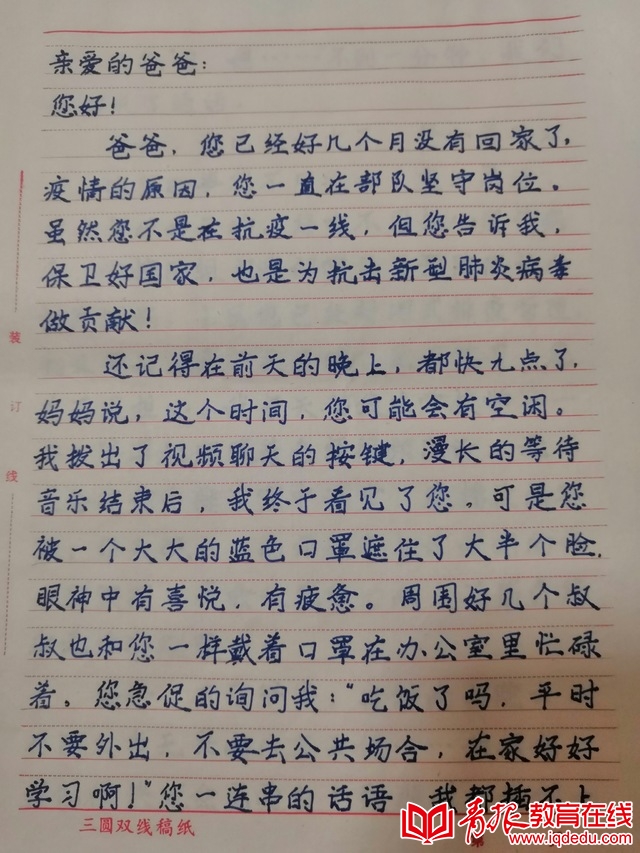 亲爱的爸爸：
您好！
爸爸，您已经好几个月没有回家了，
疫情的原因，您一直在部队坚守岗位。
虽然您不是在抗疫一线，但您告诉我，
保卫好国家，也是为抗击新型肺炎病毒
做贡献！
还记得在前天的晚上，都快九点了，
妈妈说，这个时间，您可能会有空闲。
我拨出了视频聊天的按键，漫长的等待
音乐结束后，我终于看见了您。可是您
被一个大大的蓝色口罩遮住了大半个脸，
眼神中有喜悦，有疲惫。周围好几个叔
叔也和您一样戴着口罩在办公室里忙碌
着。您急促的询问我：“吃饭了吗，平时
不要外出，不要去公共场合，在家好好
学习啊！”您一连串的话语 我都插不上
装
订
线
三圆双线稿纸
青报教育在线
www.iqdedu.com